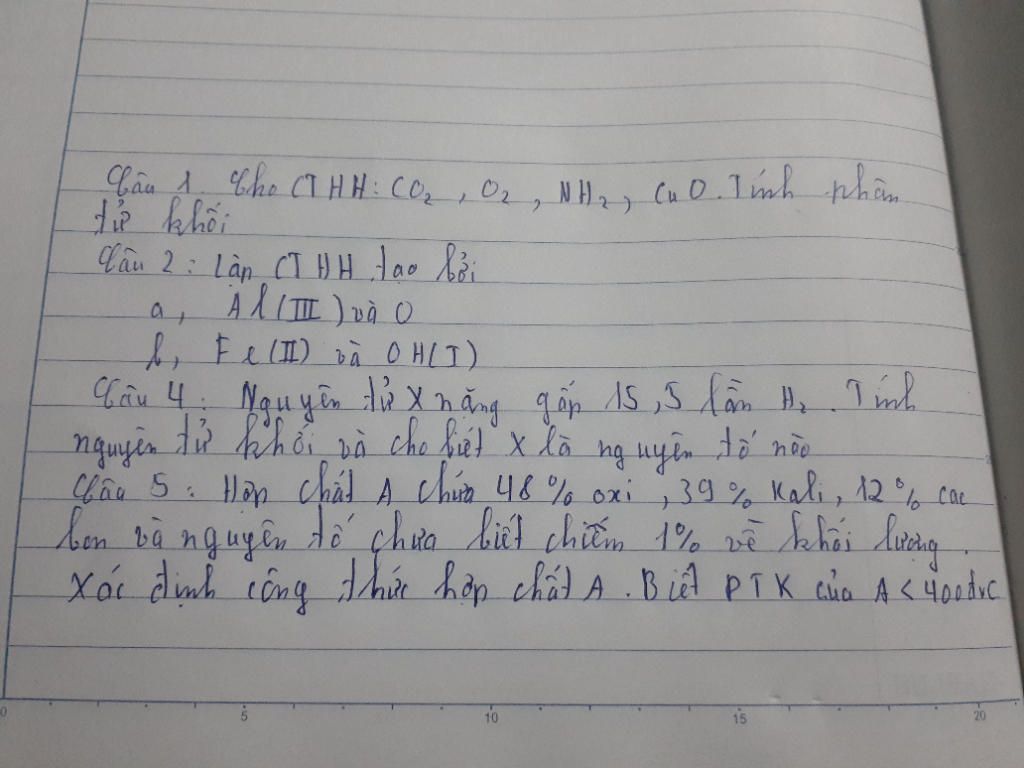 Câu 1. Cho CTHH: CO2, O2, NH2, CuO. Tính phân
tử khối
Câu 2: Lập CTHH tạo bởi
a, Al(III) và O
b, Fe(II) và OH(I)
Câu 4: Nguyên tử X nặng gấp 15,5 lần H2. Tính
nguyên tử khối và cho biết X là nguyên tố nào
Câu 5: Hợp chất A chứa 48% oxi, 39% Kali, 12% cac
bon và nguyên tố chưa biết chiếm 1% về khối lượng.
Xác định công thức hợp chất A. Biết PTK của A < 400đvC
0 5 10 15 20